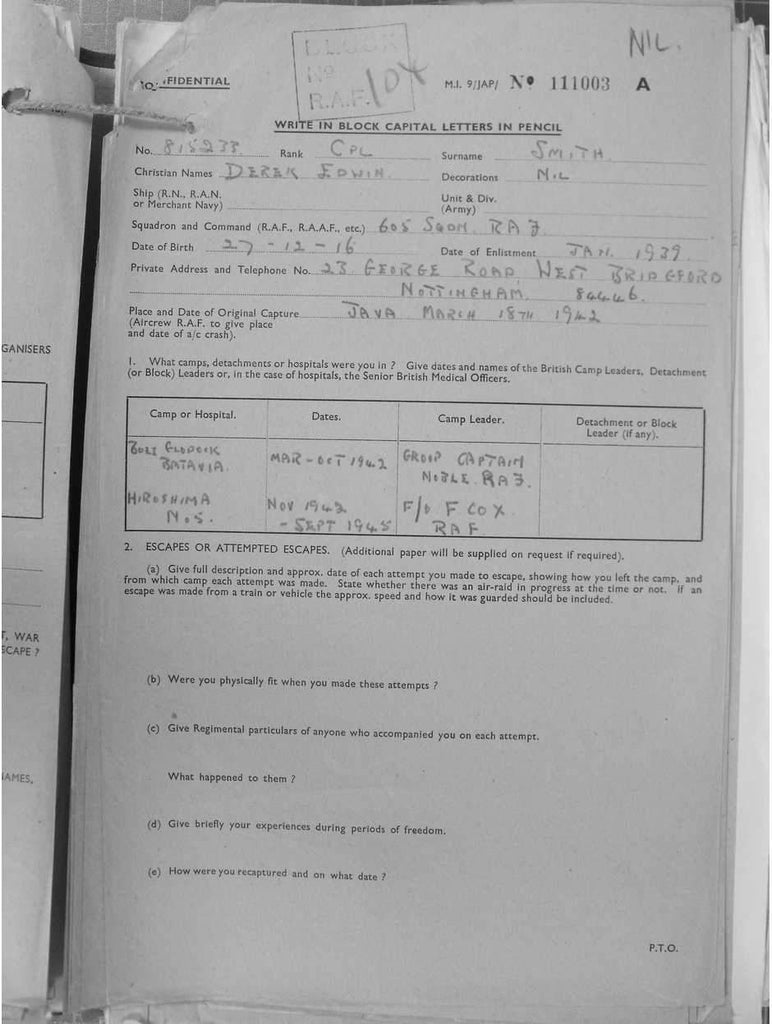 NIL.
FIDENTIAL
BLOCK
No
R.A.F. 104
M.I. 9/JAP/ No 111003 A
WRITE IN BLOCK CAPITAL LETTERS IN PENCIL
No. 815233 Rank CPL Surname SMITH
Christian Names DEREK EDWIN Decorations NIL
Ship (R.N., R.A.N. or Merchant Navy)
Unit & Div. (Army)
Squadron and Command (R.A.F., R.A.A.F., etc.) 605 SQDN. RAF
Date of Birth 27-12-16 Date of Enlistment JAN. 1939.
Private Address and Telephone No. 23 GEORGE ROAD, WEST BRIDGFORD
NOTTINGHAM. 84446.
Place and Date of Original Capture JAVA MARCH 18TH 1942
(Aircrew R.A.F. to give place
and date of a/c crash).
1. What camps, detachments or hospitals were you in ? Give dates and names of the British Camp Leaders, Detachment
(or Block) Leaders or, in the case of hospitals, the Senior British Medical Officers.
Camp or Hospital. Dates. Camp Leader. Detachment or Block
Leader (if any).
BOEI GLODOCK MAR-OCT 1942 GROUP CAPTAIN
BATAVIA. NOBLE. RAF.
HIROSHIMA NOV 1942 F/O F COX
No. 5. - SEPT 1945 RAF
2. ESCAPES OR ATTEMPTED ESCAPES. (Additional paper will be supplied on request if required).
(a) Give full description and approx. date of each attempt you made to escape, showing how you left the camp, and
from which camp each attempt was made. State whether there was an air-raid in progress at the time or not. If an
escape was made from a train or vehicle the approx. speed and how it was guarded should be included.
(b) Were you physically fit when you made these attempts ?
(c) Give Regimental particulars of anyone who accompanied you on each attempt.
What happened to them ?
(d) Give briefly your experiences during periods of freedom.
(e) How were you recaptured and on what date ?
P.T.O.
GANISERS
T, WAR
SCAPE ?
AMES,